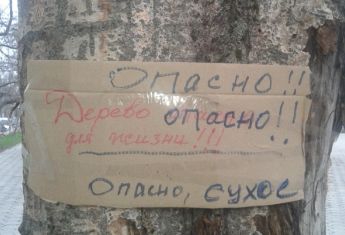 Опасно!!
Дерево опасно!!
для жизни!!!
Опасно, сухое